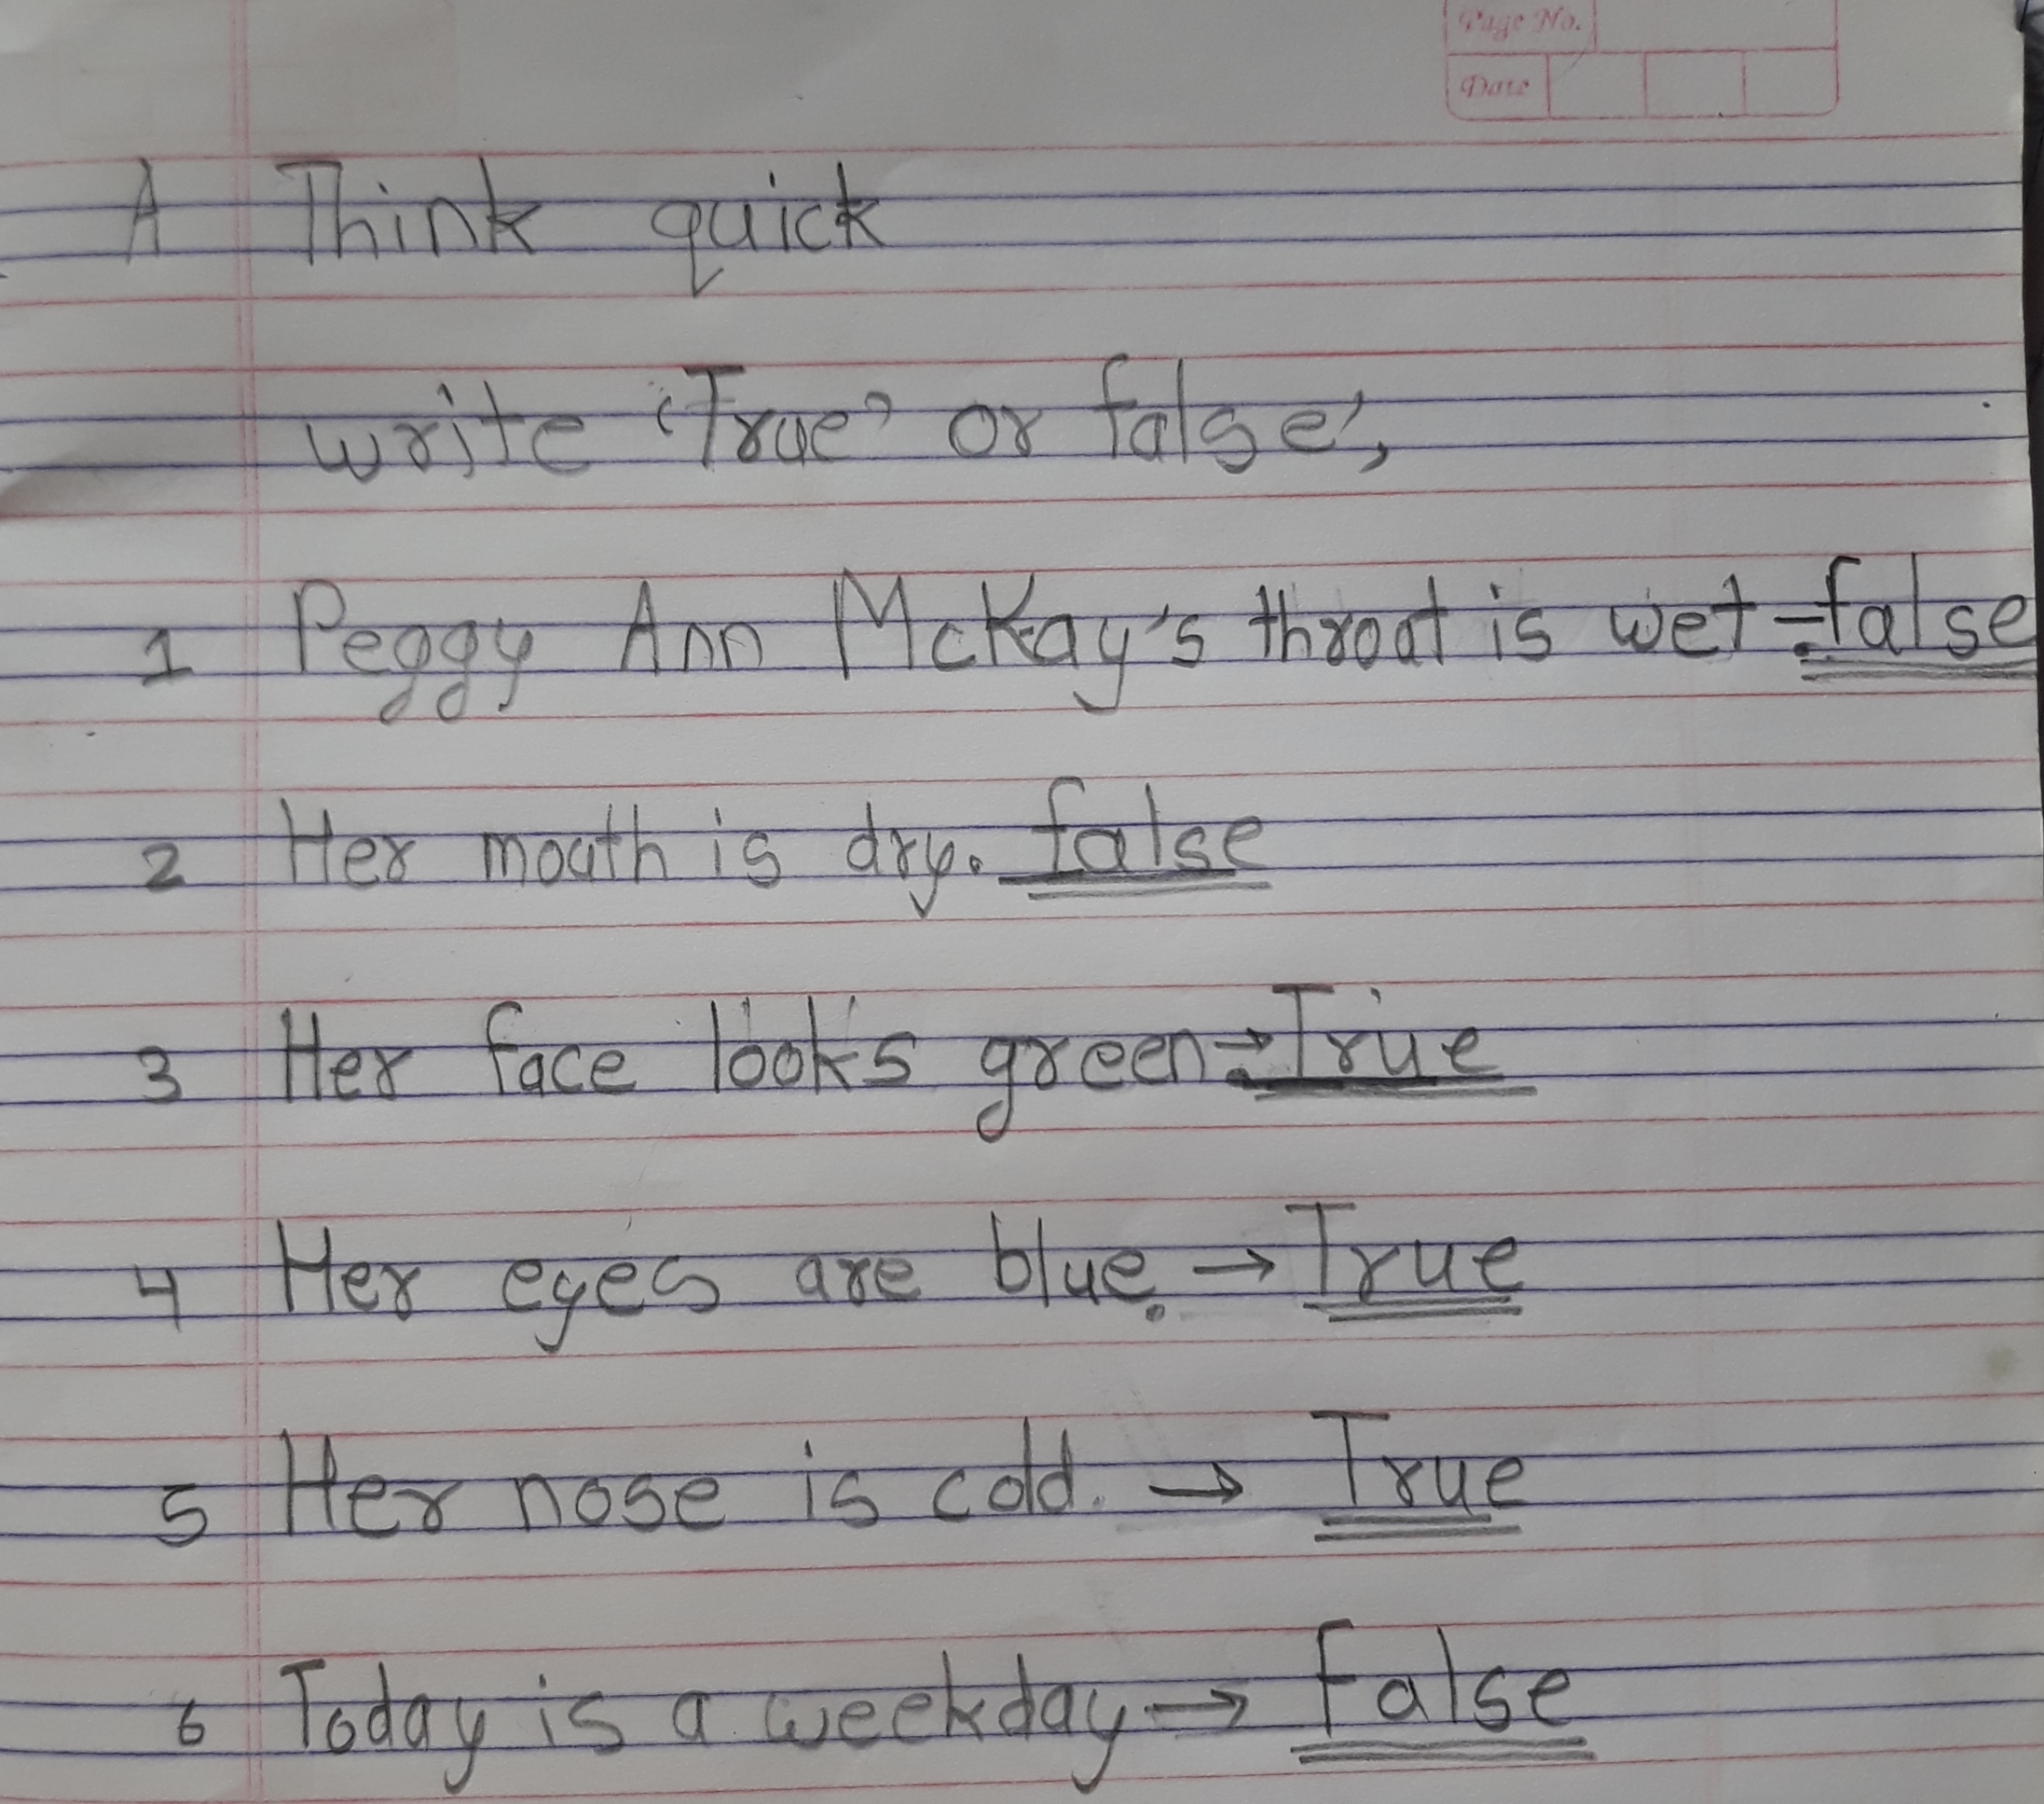 Page No.
Date
A Think quick
write 'True' or false',
1 Peggy Ann McKay's throat is wet - false
2 Her mouth is dry. false
3 Her face looks green. → True
4 Her eyes are blue. → True
5 Her nose is cold. → True
6 Today is a weekday → False